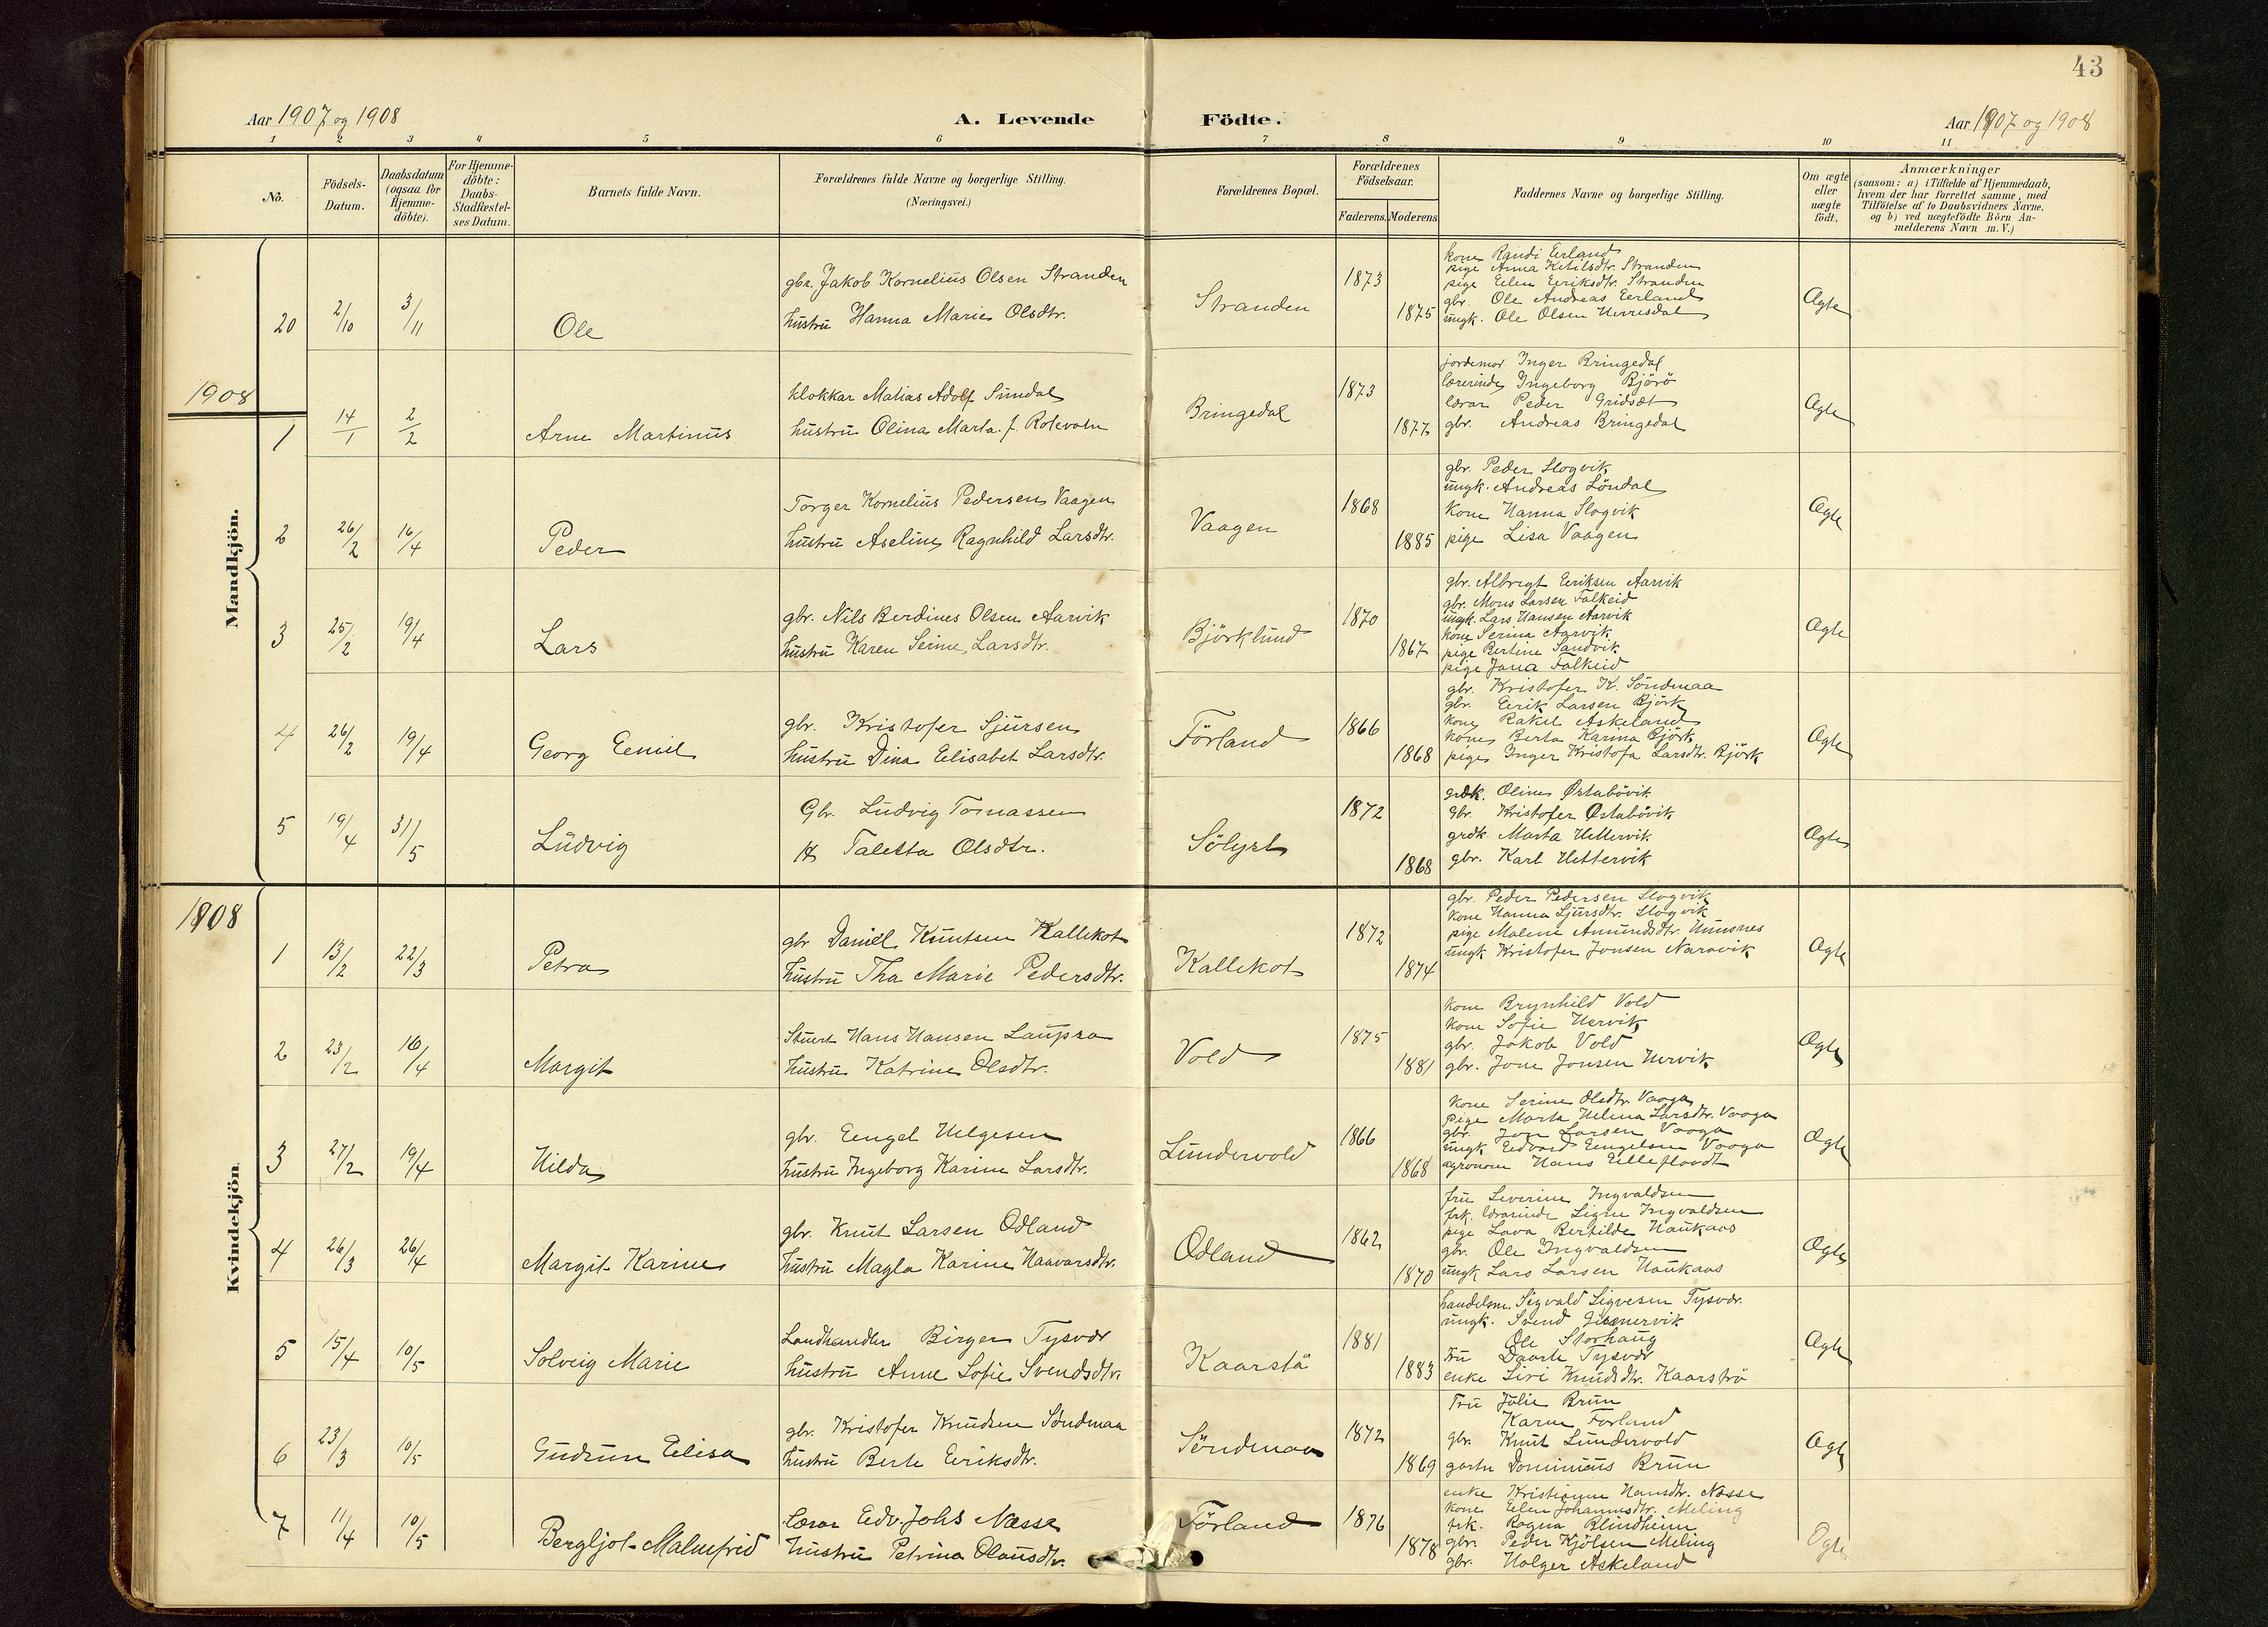 43
Aar 1907 og 1908
A. Levende Födte.
Aar 1907 og 1908
1 2 3 4 5 6 7 8 9 10 11
No.
Födsels-Datum.
Daabsdatum (ogsaa for Hjemme-döbte).
For Hjemme-döbte: Daabs-Stadfæstel-ses Datum.
Barnets fulde Navn.
Forældrenes fulde Navne og borgerlige Stilling.
(Næringsvei.)
Forældrenes Bopæl.
Forældrenes Födselsaar.
Faderens. Moderens
Faddernes Navne og borgerlige Stilling.
Om ægte eller uægte födt.
Anmærkninger
(saasom: a) i Tilfælde af Hjemmedaab,
hvem der har forrettet samme, med
Tilföielse af to Daabsvidners Navne,
og b) ved uægtefödte Börn An-
melderens Navn m. V.)
Mandkjön.
20 2/10 3/11 Ole
gbr. Jakob Kornelius Olsen Stranden
hustru Hanna Marie Olsdtr.
Stranden 1873 1875
kone Randi Eerland
pige Anna Ketilsdtr. Stranden
pige Eelen Eeriksdtr. Stranden
gbr. Ole Andreas Eerland
ungk. Ole Olsen
Ægte
1908
1 14/1 2/2 Arne Martinus
klokkar Matias Adolf Sundal
hustru Olina Marta f. Rotevatn
Bringedal 1873 1877
jordemor Inger Bringedal
lærerinde Ingeborg Björö
lærar Peder Gridsæt
gbr. Andreas Bringedal
Ægte
2 26/2 16/4 Peder
Torger Kornelius Pedersen Vaagen
hustru Aseline Ragnhild Larsdtr.
Vaagen 1868 1885
gbr. Peder Slogvik
ungk. Andreas Löndal
Kone Hanna Slogvik
pige Lisa Vaagen
Ægte
3 25/2 19/4 Lars
gbr. Nils Berdines Olsen Aarvik
hustru Karen Serine Larsdtr.
Björklund 1870 1867
gbr. Albregt Eeriksen Aarvik
gbr. Mons Larsen Falkeid
ungk. Lars Hansen Aarvik
kone Serina Aarvik
pige Bertine Sandvik
pige Jana Falkeid
Ægte
4 26/2 19/4 Georg Eemil
gbr. Kristofer Sjursen
hustru Dina Eelisabet Larsdtr.
Förland 1866 1868
gbr. Kristofer K. Söndmaa
gbr. Eerik Larsen Björk
kone Rakel Askeland
kone Berta Karina Björk
pige Inger Kristofa Larsdtr. Björk
Ægte
5 19/4 31/5 Ludvig
Gbr. Ludvig Tomassen
H Taletta Olsdtr.
Sölyst 1872 1868
grdk. Oline Østabövik
Gbr. Kristofer Østabövik
grdk. Marta Hettervik
gbr. Karl Hettervik
Ægte
1908
Kvindekjön.
1 13/2 22/3 Petra
gbr Daniel Knutsen Kallekot
hustru Tha Marie Pedersdtr.
Kallekot 1872 1874
gbr. Peder Pedersen Slogvik
kone Hanna Sjursdtr. Slogvik
pige Malene Amundsdtr.
ungk Kristofer Jonsen Naravik
Ægte
2 23/2 16/4 Margit
Stuert Hans Hansen Laupsa
hustru Katrine Olsdtr.
Vold 1875 1881
kone Brynhild Vold
kone Sofie Hervik
gbr. Jakob Vold
gbr. Jone Jonsen Hervik
Ægte
3 27/2 19/4 Hilda
gbr. Eengel Helgesen
hustru Ingeborg Karine Larsdtr.
Lundervold 1866 1868
kone Serine Olsdtr. Vaaga
pige Marta Helena Larsdtr. Vaaga
gbr. Jon Larsen Vaaga
ungk Eedvard Eengelsen Vaaga
agronom Hans
Ægte
4 26/3 26/4 Margit Karine
gbr. Knut Larsen Odland
hustru Magla Karine Haavarsdtr.
Odland 1862 1870
fru Severine Ingvaldsen
frk. lærarinde Signe Ingvaldsen
pige Lava Bertilde Haukaas
gbr. Ole Ingvaldsen
ungk Lars Larsen Haukaas
Ægte
5 15/4 10/5 Solveig Marie
Landhandler Birger Tysvær
hustru Anne Sofie Svendsdtr.
Kaarstä 1881 1883
handelsm. Sigvald Sigvesen Tysvær.
ungk. Svend
Ole Storhaug
Fru Daarte Tysvær
enke Siri Knudsdtr. Kaarströ
Ægte
6 23/3 10/5 Gudrun Eelisa
gbr. Kristofer Knudsen Söndmaa
hustru Berte Eeriksdtr.
Söndmaa 1872 1869
Fru Julie Brun
Karne Förland
gbr. Knut Lundervold
gartn Dominicus Brun
Ægte
7 11/4 10/5 Bergljot Malmfrid
Lærar Edv. Johs Næsse
hustru Petrina Olausdtr.
Förland 1876 1878
enke Kristianne Hansdtr. Næsse
kone Eelen Johannesdtr. Meling
frk. Ragna Blindheim
gbr. Peder Kjölsen Meling
gbr. Holger Askeland
Ægte